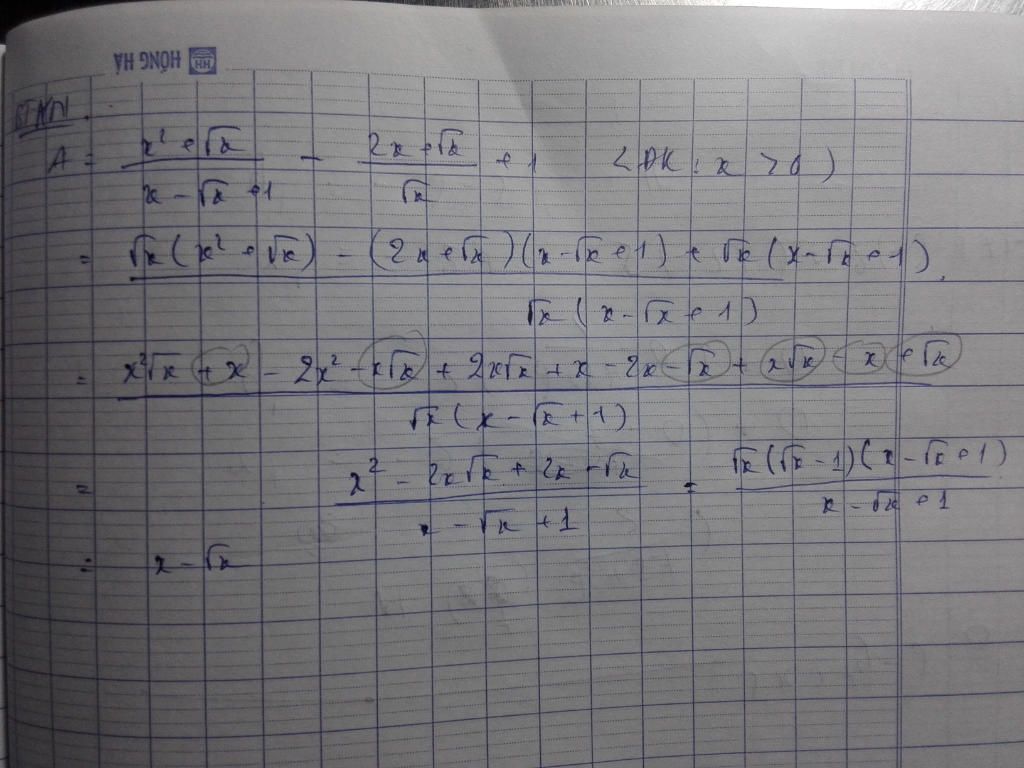 HỒNG HÀ
BTKN.
A = \frac{x² + √x}{x - √x + 1} - \frac{2x + √x}{√x} + 1 (ĐK: x > 0)
= \frac{√x(x² + √x) - (2x + √x)(x - √x + 1) + √x(x - √x + 1)}{√x(x - √x + 1)}
= \frac{x²√x + x - 2x² - x√x + 2x√x + x - 2x - √x + x√x - x + √x}{√x(x - √x + 1)}
= \frac{x² - 2x√x + 2x - √x}{x - √x + 1} = \frac{√x(√x - 1)(x - √x + 1)}{x - √x + 1}
= x - √x